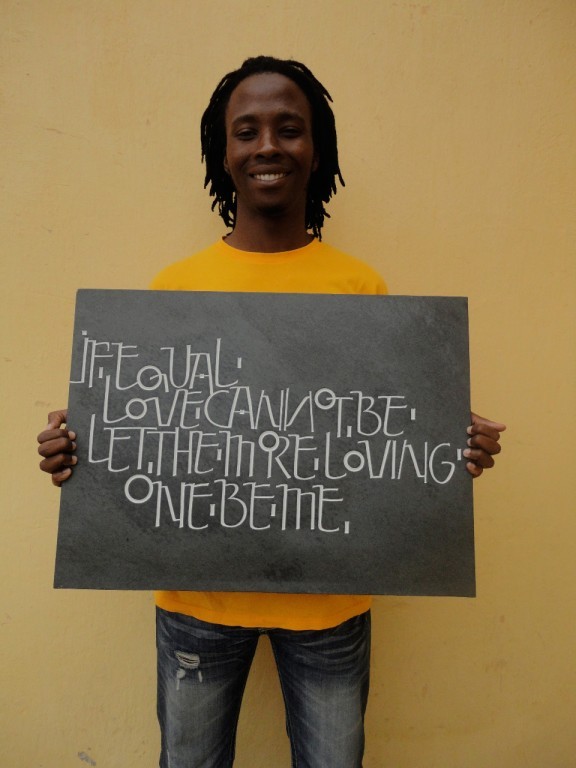 IF EQUAL
LOVE CANNOT BE
LET THE MORE LOVING
ONE BE ME